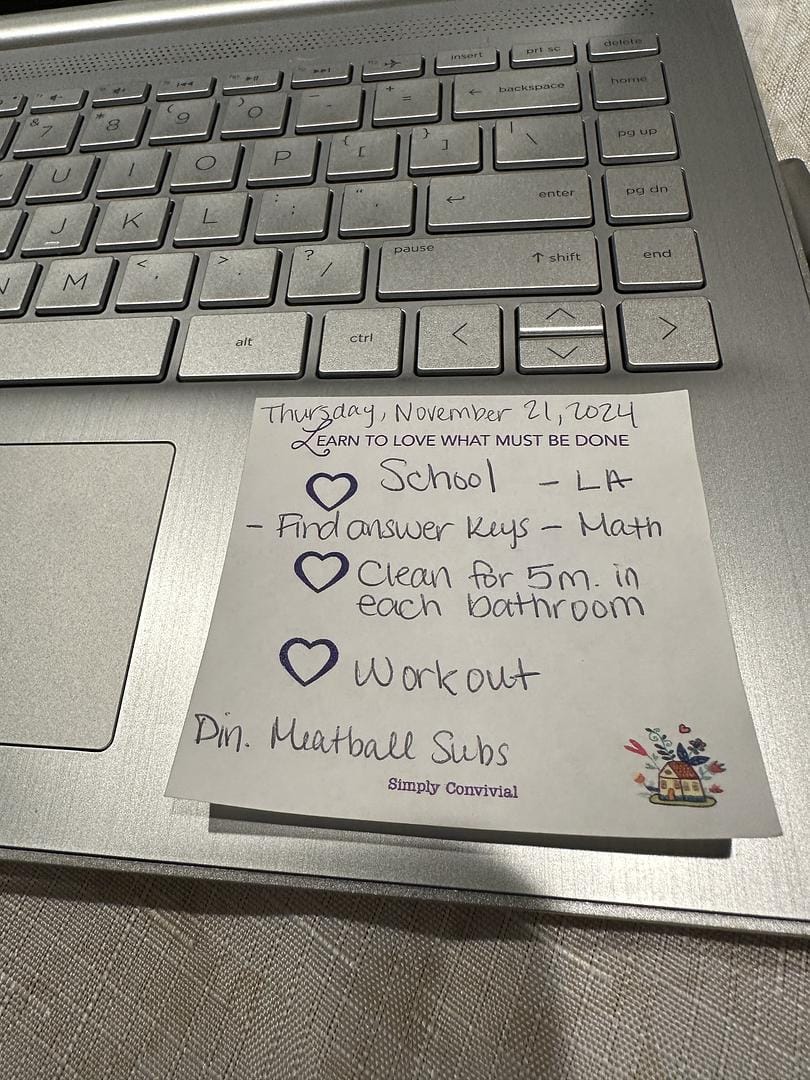 insert prt sc delete
& 7 * 8 ( 9 ) 0 _ - + = ← backspace home
U I O P { [ } ] | \ pg up
J K L : ; " ' ↵ enter pg dn
N M < , > . ? / pause ↑ shift end
alt ctrl < >
Thursday, November 21, 2024
LEARN TO LOVE WHAT MUST BE DONE
School - LA
- Find answer Keys - Math
Clean for 5m. in
each bathroom
Workout
Din. Meatball Subs
Simply Convivial